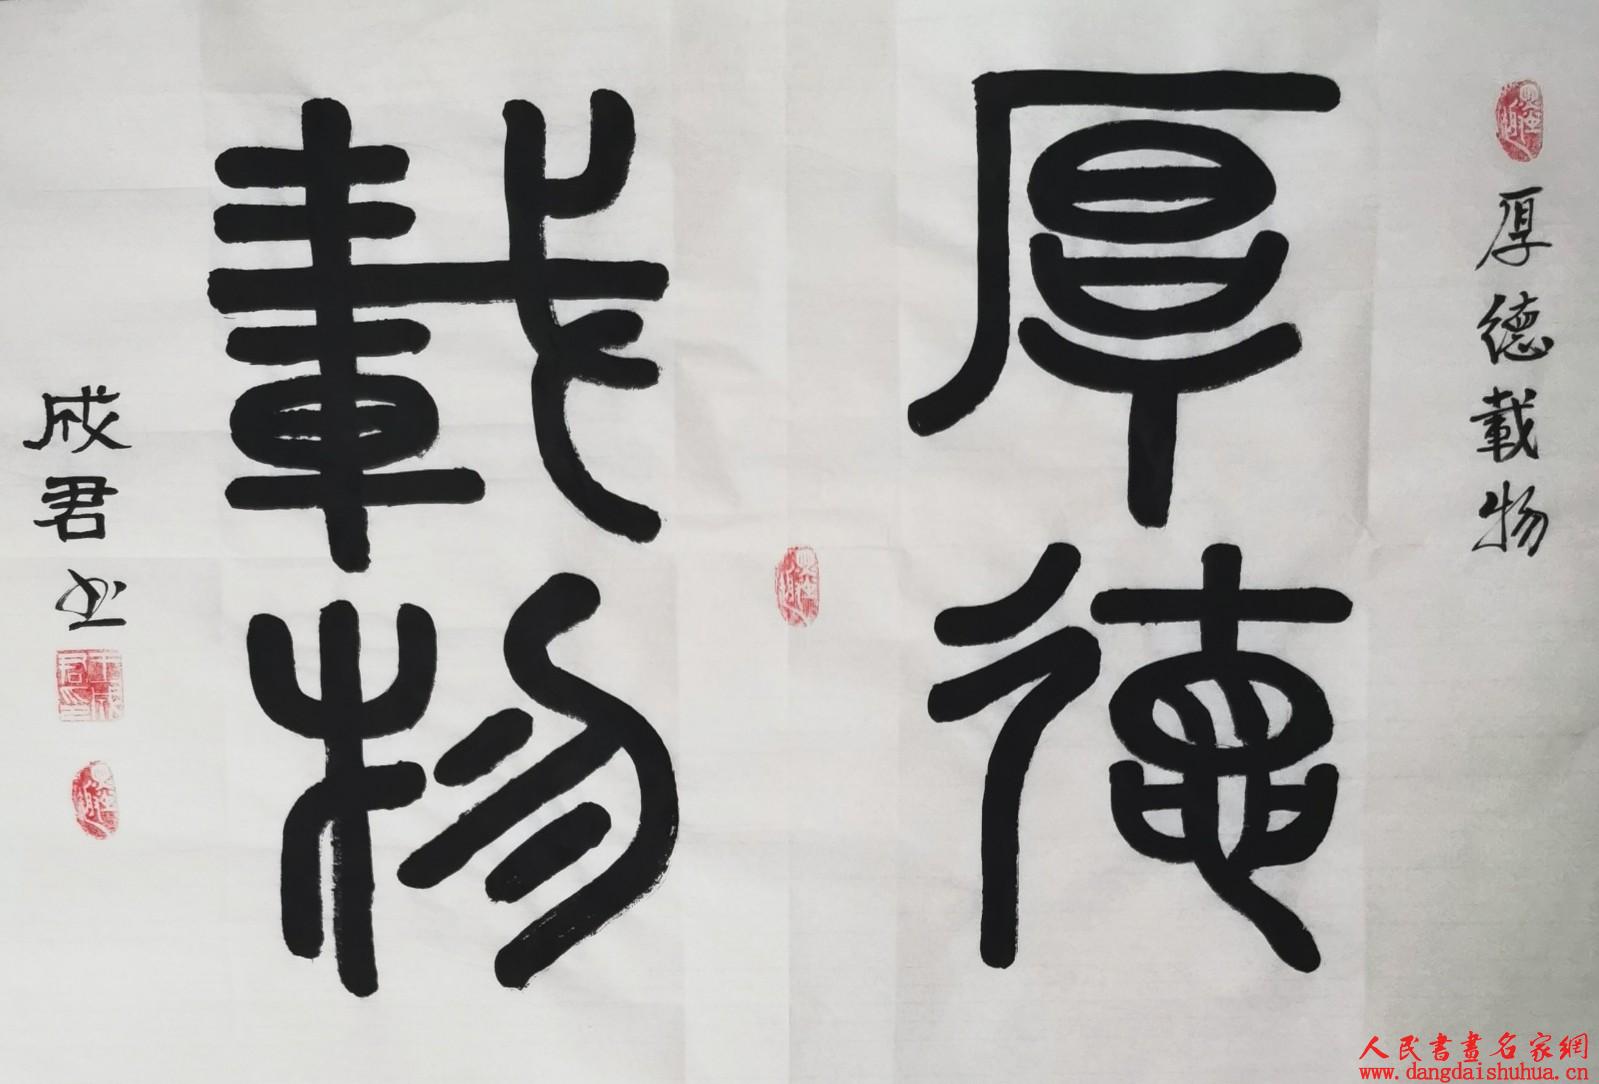 厚德載物
厚德
載物
成君书
人民書畫名家網
www.dangdaishuhua.cn